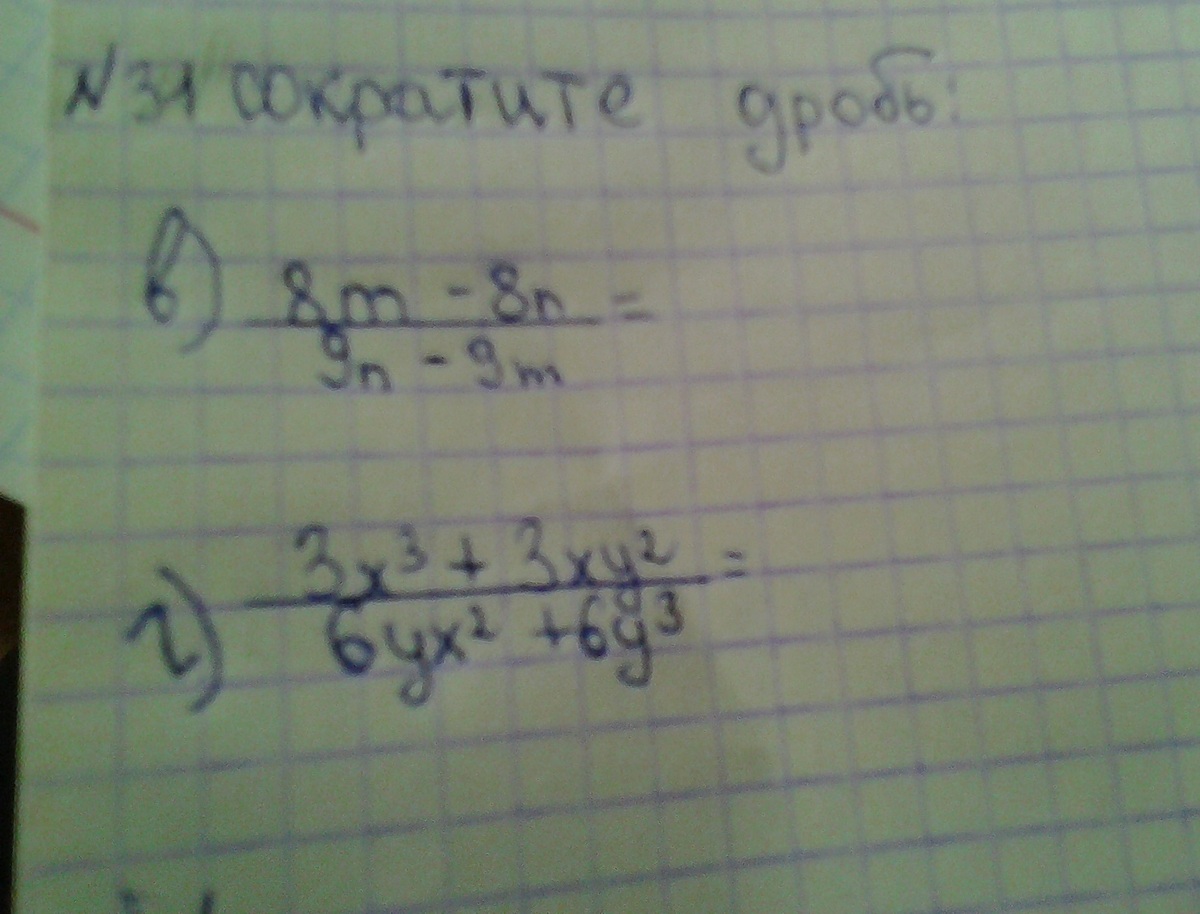 N31 сократите дробь:
в) 8m - 8n =
9n - 9m
г) 3x³ + 3xy² =
6yx² + 6y³